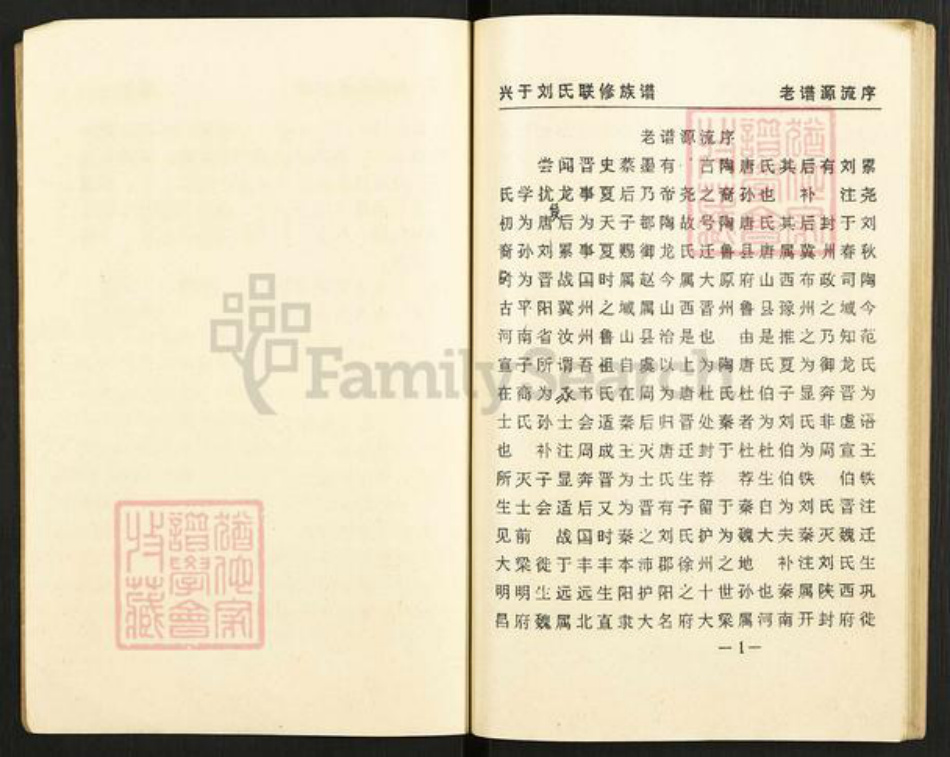 兴于刘氏联修族谱 老谱源流序
老谱源流序
尝闻晋史蔡墨有 言陶唐氏其后有刘累
氏学扰龙事夏后乃帝尧之裔孙也 补 注尧
初为唐后为天子都陶故号陶唐氏其后封于刘
裔孙刘累事夏赐御龙氏迁鲁县唐属冀州春秋
时为晋战国时属赵今属大原府山西布政司陶
古平阳冀州之域属山西晋州鲁县豫州之域今
河南省汝州鲁山县治是也 由是推之乃知范
宣子所谓吾祖自虞以上为陶唐氏夏为御龙氏
在商为豕韦氏在周为唐杜氏杜伯子显奔晋为
士氏孙士会适秦后归晋处秦者为刘氏非虚语
也 补注周成王灭唐迁封于杜杜伯为周宣王
所灭子显奔晋为士氏生荐 荐生伯铁 伯铁
生士会适后又为晋有子留于秦自为刘氏晋注
见前 战国时秦之刘氏护为魏大夫秦灭魏迁
大梁徙于丰丰本沛郡徐州之地 补注刘氏生
明明生远远生阳护阳之十世孙也秦属陕西巩
昌府魏属北直隶大名府大梁属河南开封府徙
—1—
FamilySearch